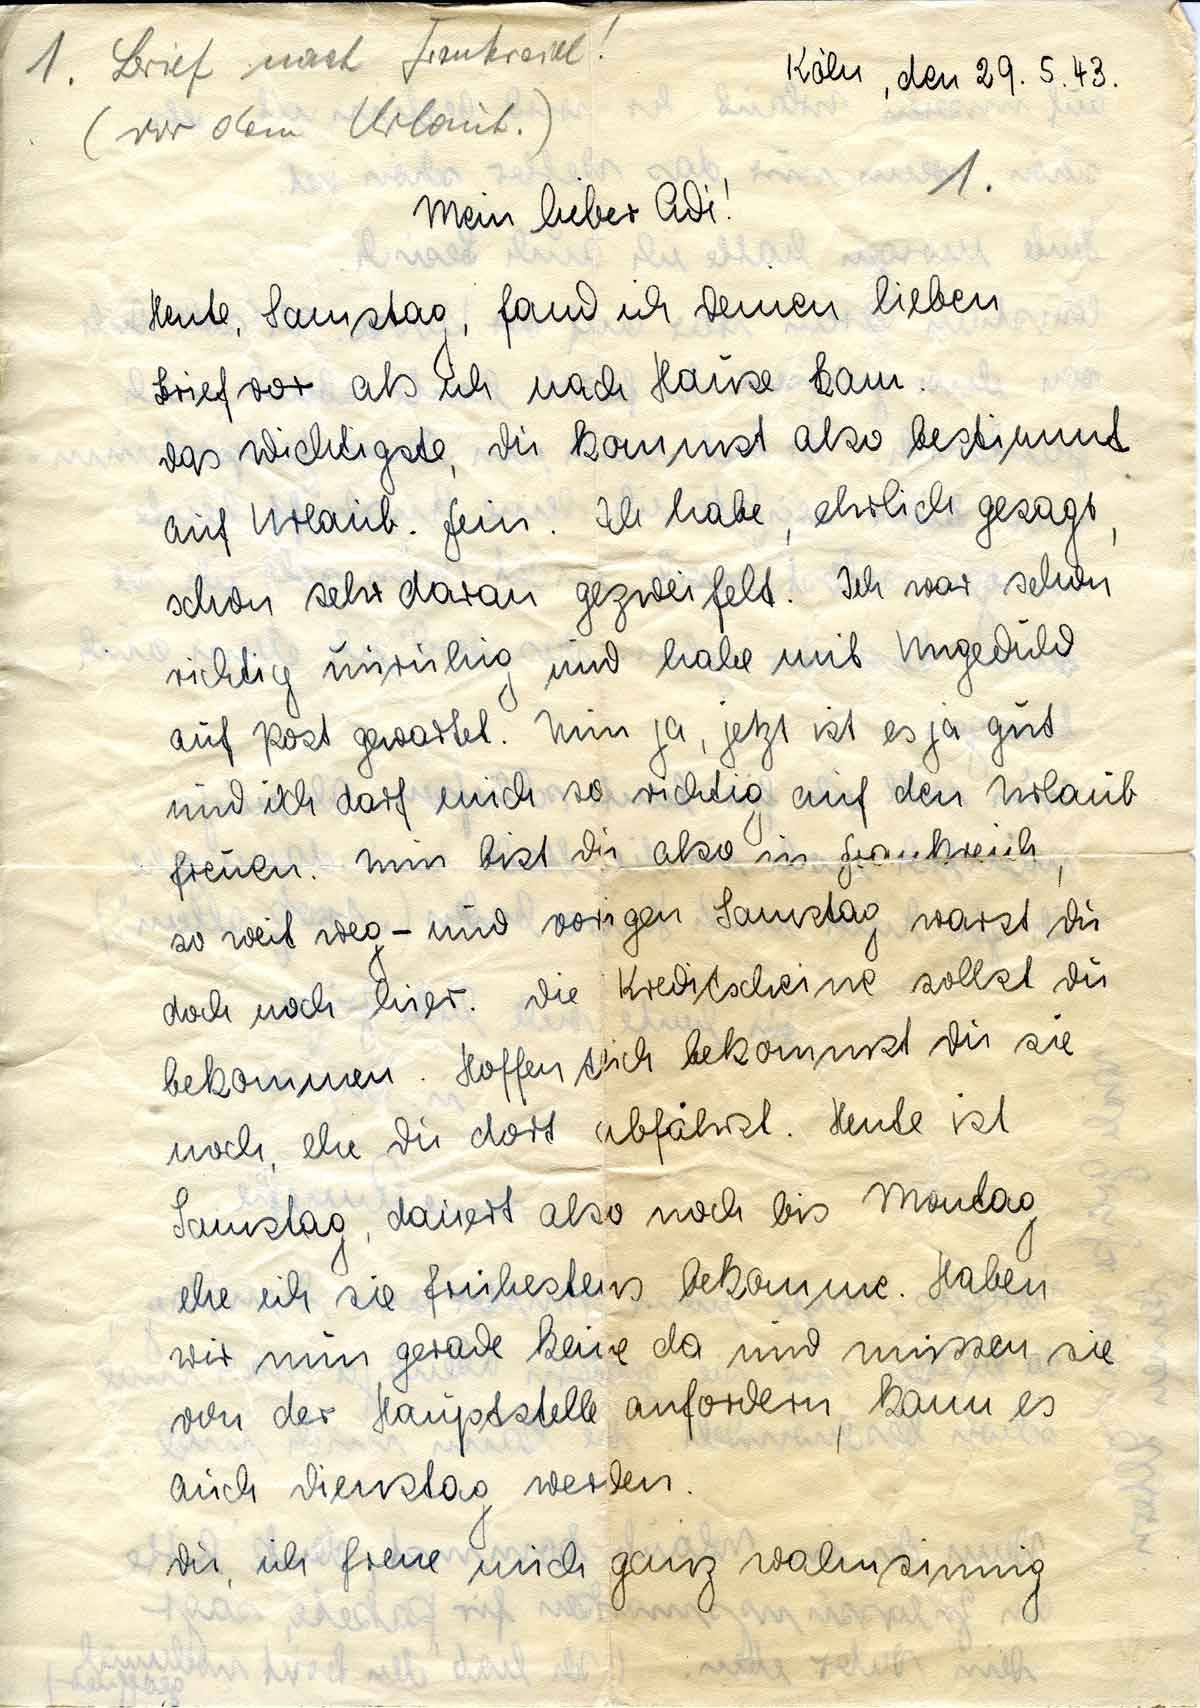 1. Brief nach Frankreich!
(vor dem Urlaub.)
Köln, den 29. 5. 43.
1.
Mein lieber Adi!
Heute, Samstag, fand ich deinen lieben
Brief vor als ich nach Hause kam.
das wichtigste, du kommst also bestimmt
auf Urlaub. Fein. Ich habe, ehrlich gesagt,
schon sehr daran gezweifelt. Ich war schon
richtig unruhig und habe mit Ungeduld
auf Post gewartet. Nun ja, jetzt ist es ja gut
und ich darf mich so richtig auf den Urlaub
freuen. Nun bist du also in Frankreich,
so weit weg – und vorigen Samstag warst du
doch noch hier. Die Kreditscheine sollst du
bekommen. Hoffentlich bekommst du sie
noch, ehe du dort abfährst. Heute ist
Samstag, dauert also noch bis Montag
ehe ich sie frühestens bekomme. Haben
wir nun gerade keine da und müssen sie
von der Hauptstelle anfordern, kann es
auch Dienstag werden.
Du, ich freue mich ganz wahnsinnig